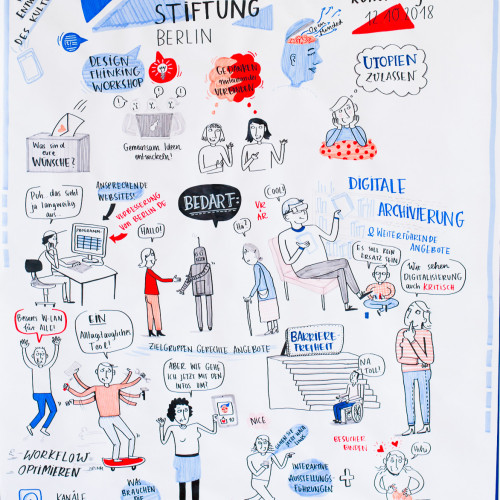 DES KULT
STIFTUNG
BERLIN
12.10.2018
DESIGN
THINKING
WORKSHOP
GEDANKEN
miteinander
VERBINDEN
UTOPIEN
ZULASSEN
Was sind
eure
WÜNSCHE?
Gemeinsam Ideen
entwickeln!
Puh, das sieht
ja langweilig
aus...
ANSPRECHENDE
WEBSITES!
VERBESSERUNG
VON BERLIN.DE
PROGRAMM
HALLO!
BEDARF:
Hä?
VR
AR
COOL!
DIGITALE
ARCHIVIERUNG
& WEITERFÜHRENDE
ANGEBOTE
ES SOLL KEIN
ERSATZ SEIN
Wir sehen
DIGITALISIERUNG
auch KRITISCH
Besseres W-LAN
für ALLE!
EIN
Alltagstaugliches
Tool!
ZIELGRUPPEN GERECHTE ANGEBOTE
ABER WIE GEHE
ICH JETZT MIT DEN
INFOS UM?
BARRIERE-
FREIHEIT
NA
TOLL!
WORKFLOW
OPTIMIEREN
NICE
BESUCHER
BINDEN
INTERAKTIVE
AUSSTELLUNGS
FÜHRUNGEN
+
KANÄLE
WAS
BRAUCHEN